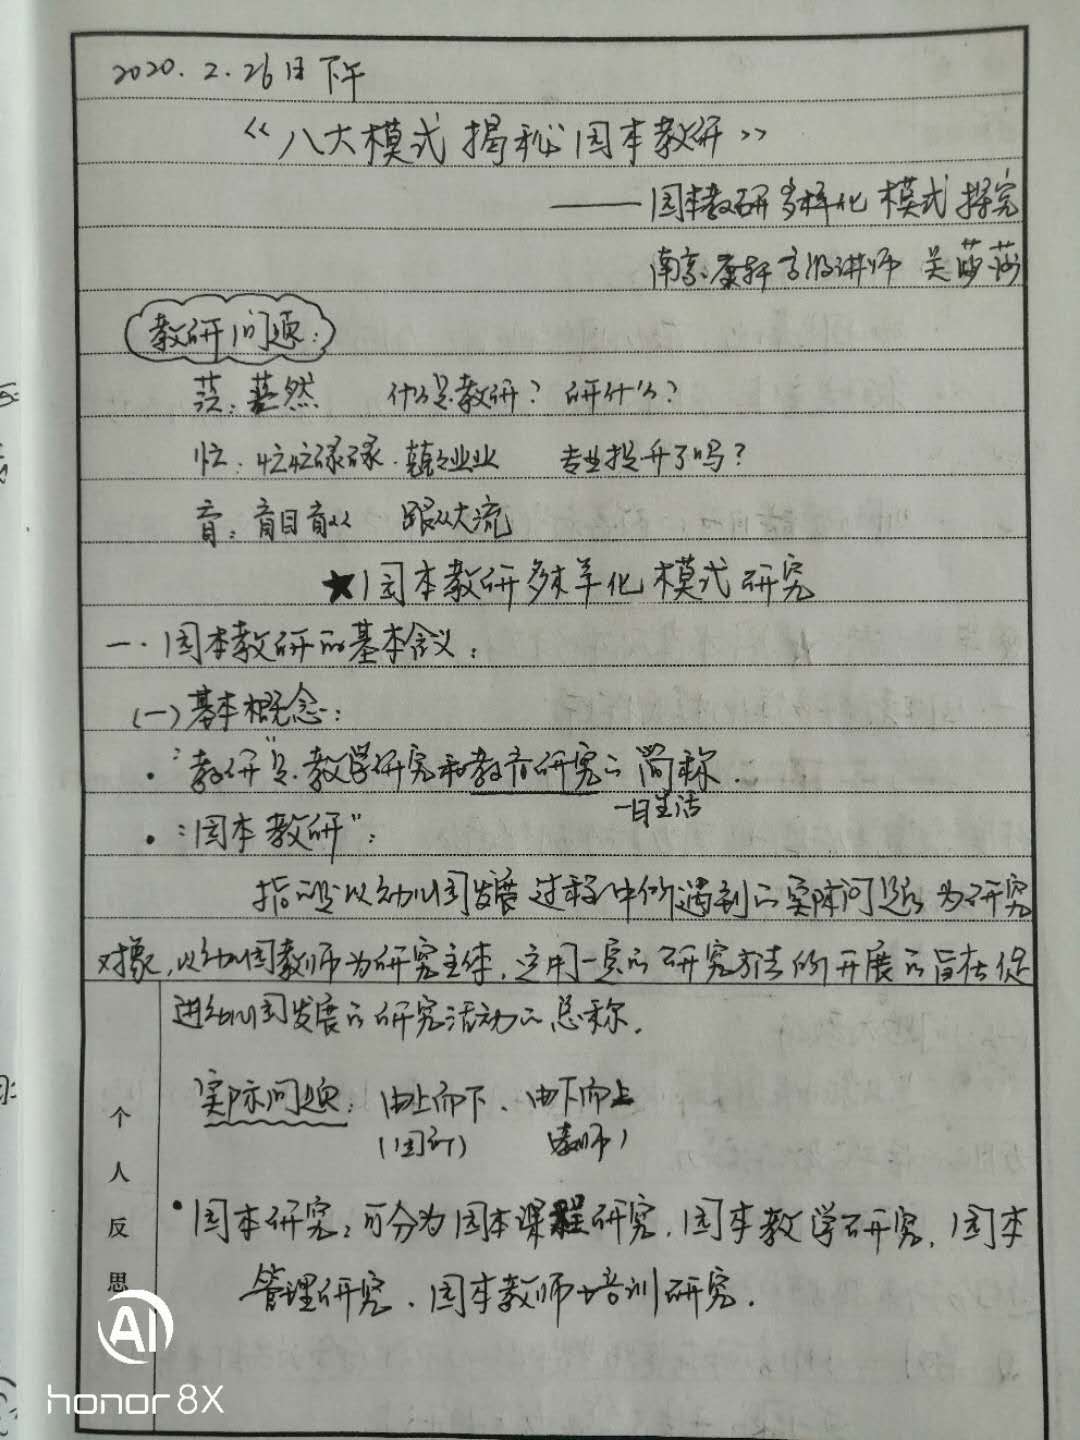 2020.2.26日下午
《八大模式揭秘园本教研》
——园本教研多样化模式探究
南京康轩高级讲师 吴莎莎
教研问题：
茫：茫然 什么是教研？研什么？
忙：忙忙碌碌、兢兢业业 专业提升了吗？
盲：盲目盲从 跟从大流
★园本教研多样化模式研究
一、园本教研的基本含义：
(一)基本概念：
·“教研”是教学研究和教育研究的简称．
一日生活
·“园本教研”：
指的是以幼儿园发展过程中所遇到的实际问题为研究
对象，以幼儿园教师为研究主体，运用一定的研究方法所开展的旨在促
进幼儿园发展的研究活动的总称．
实际问题：由上而下、由下而上
(园所) (教师)
·园本研究：可分为园本课程研究、园本教学研究、园本
管理研究、园本教师培训研究．
个人反思
AI
honor 8X